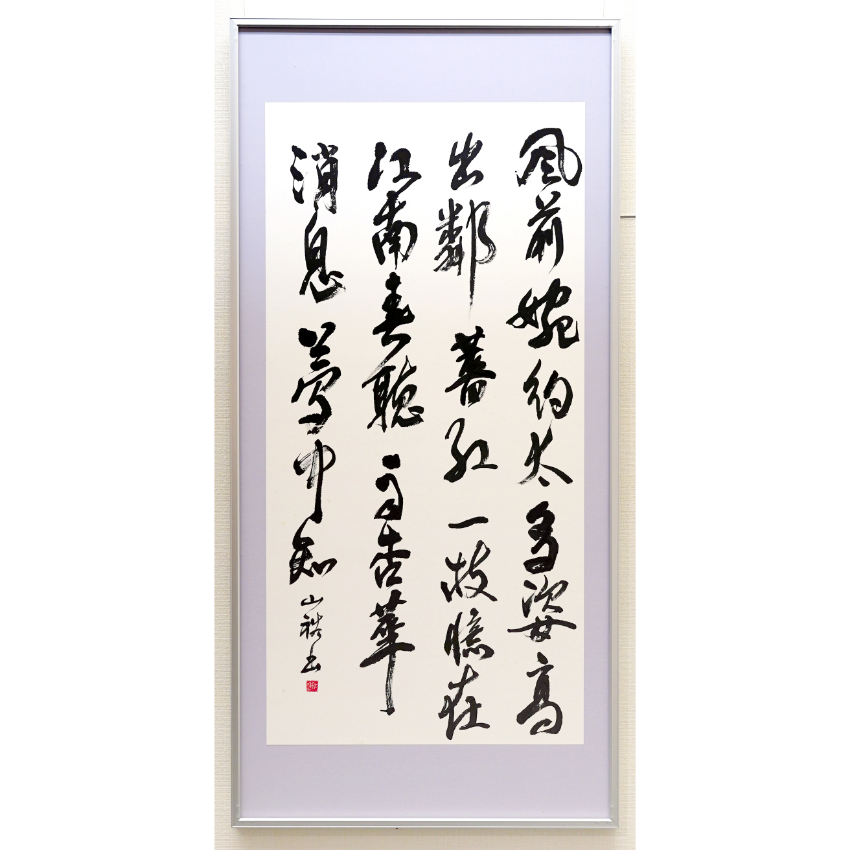 風前婉約太多姿高
出鄰薔紅一枝憶在
江南春聽雨杏華
消息夢中知 山書